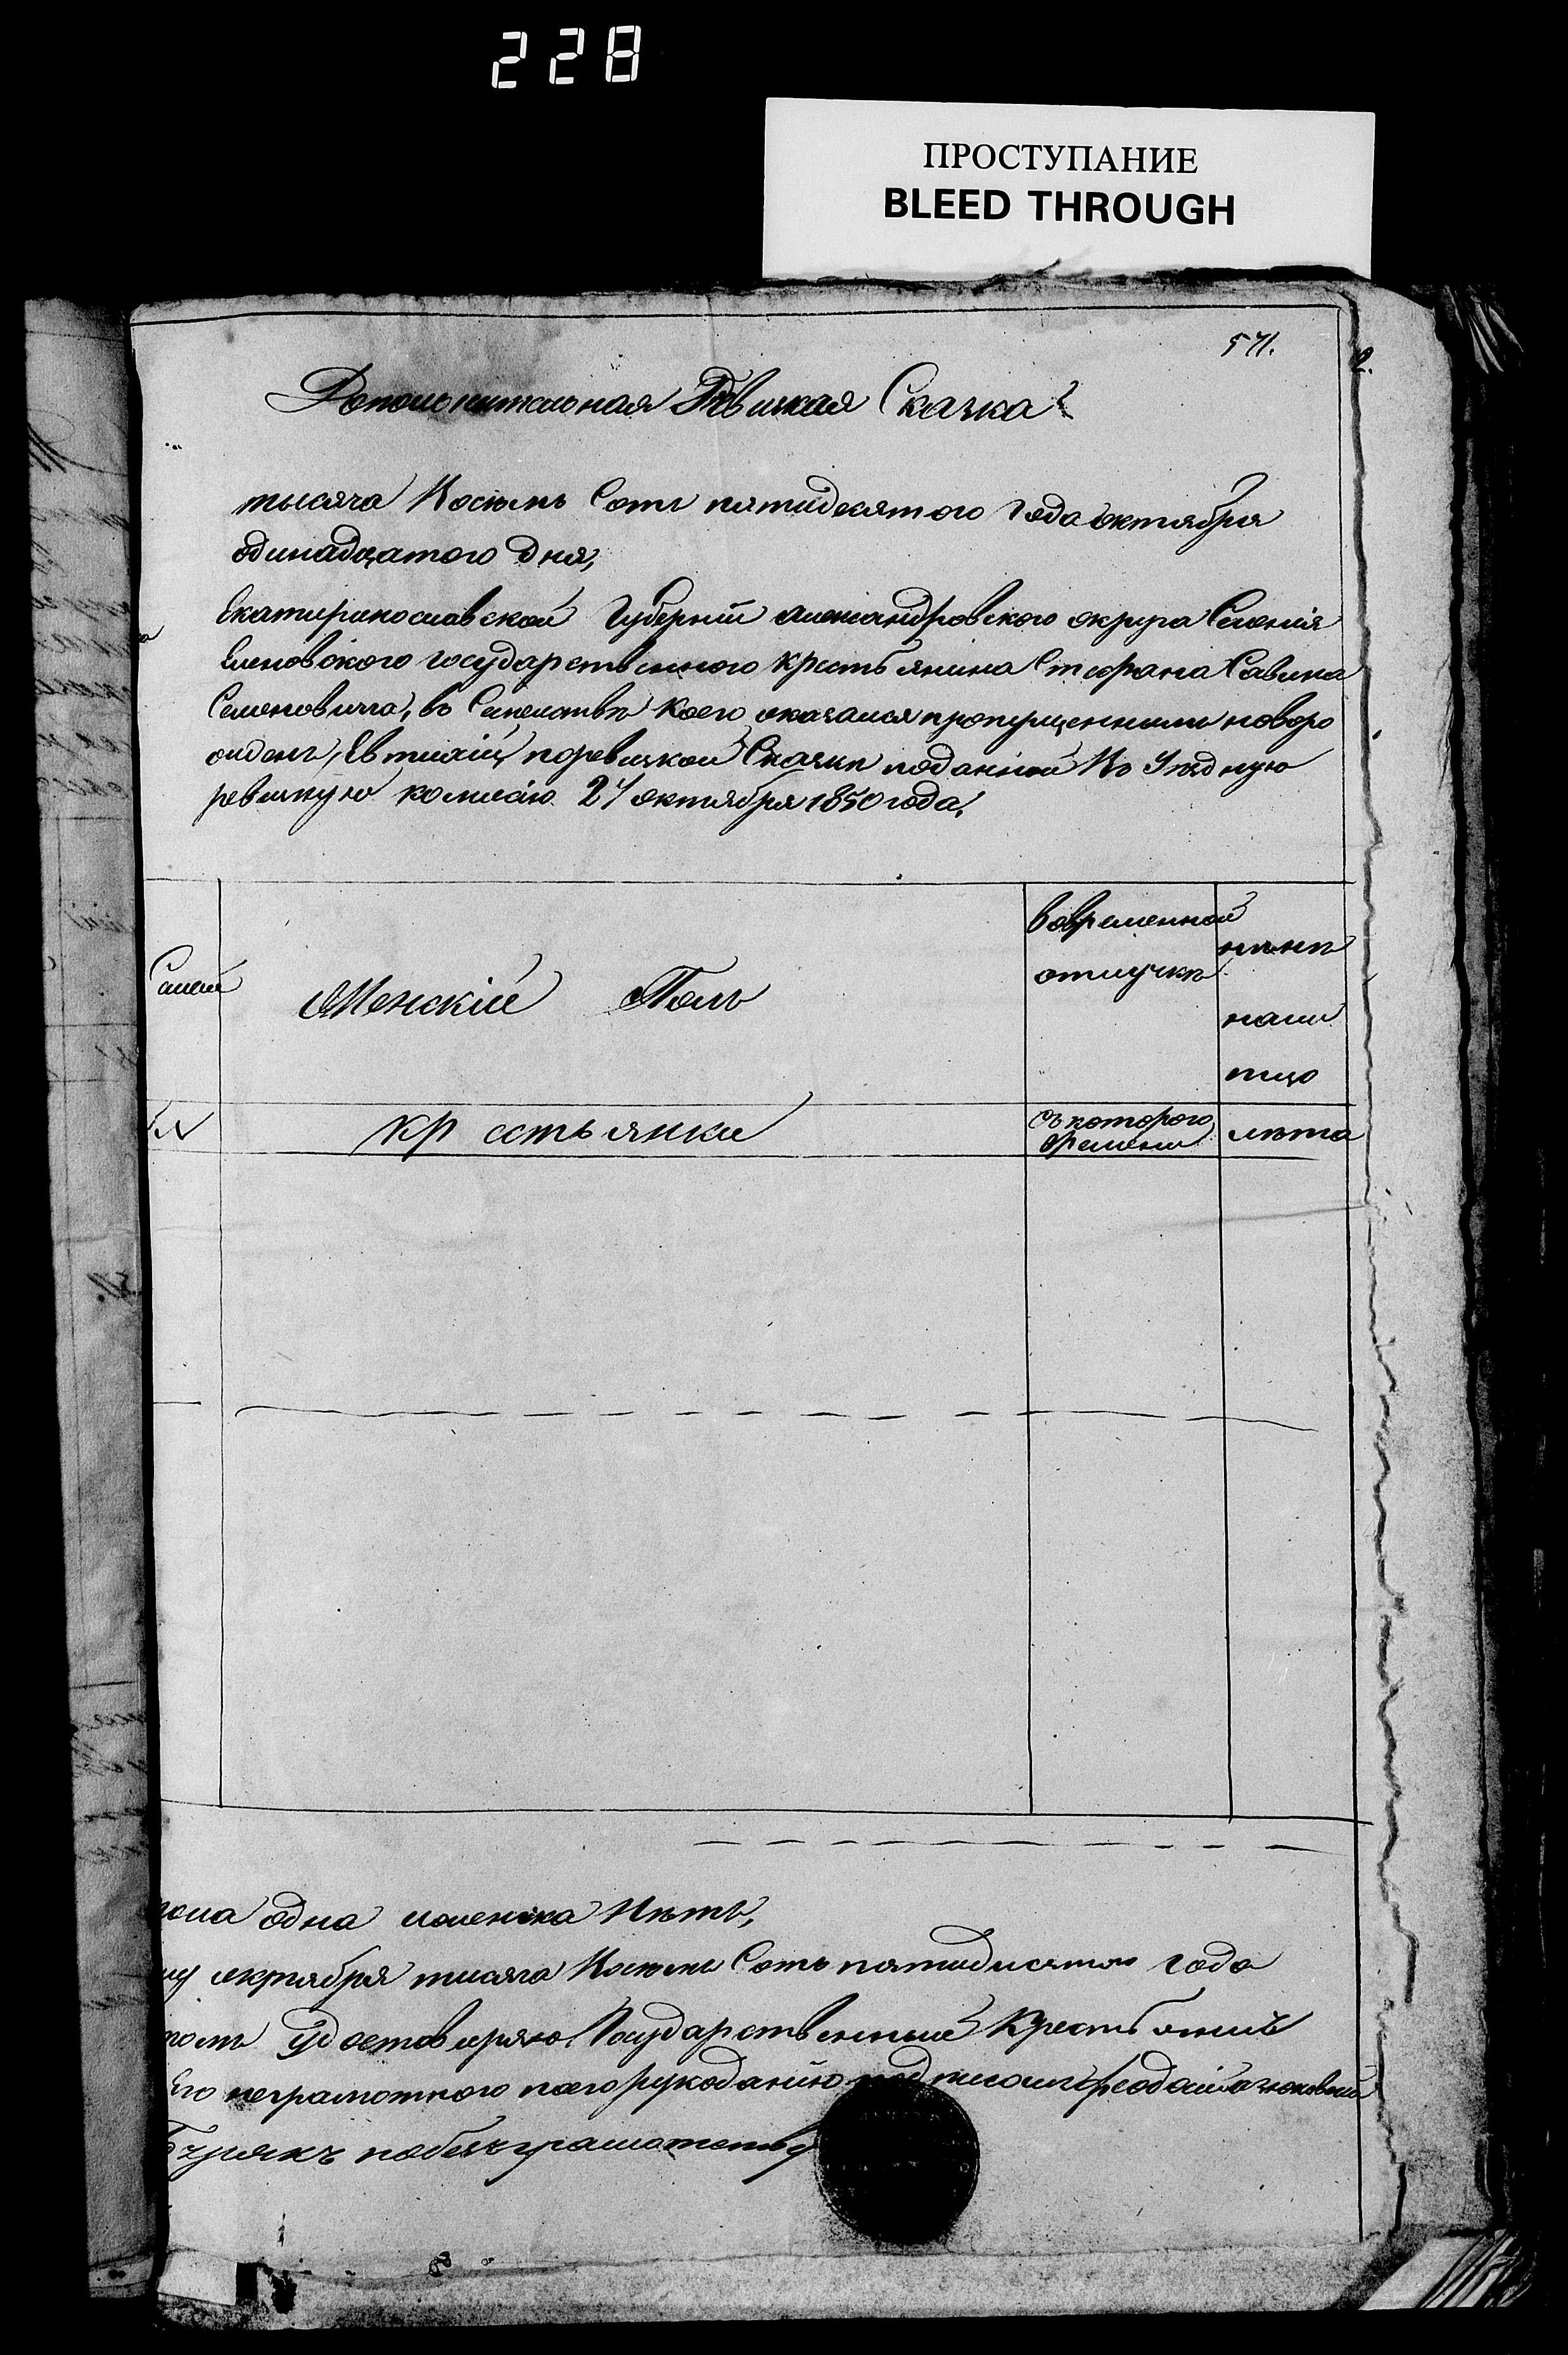 228
ПРОСТУПАНИЕ
BLEED THROUGH
571.
2.
Дополнительная Ревизкая Сказка
тысяча Восемь Сотъ пятидесятого года октября
одинадцатого дня,
Екатиринославской Губерніи александровского округа Селенія
Еленовского государственного крестьянина Стефана Савина
Семеновича, въ Семействѣ коего оказался пропущеннымъ новоро
жденъ, Евтихій поревизкой Сказки поданной Во Уѣздную
ревизкую комисію 27 октября 1850 года,
Семей
Женскій Полъ
вовременной
отлучкѣ
нынѣ
нали
тцо
крестьянки
съ которого
времени
лѣта
одна человѣка Нѣтъ,
октября тисяча Восемь Сотъ пятидисятаго года
томъ Удостовиряю, Государственный Крестьянинъ
Его неграмотного поего рукоданію подписалъ
Бурякъ побезграмотству